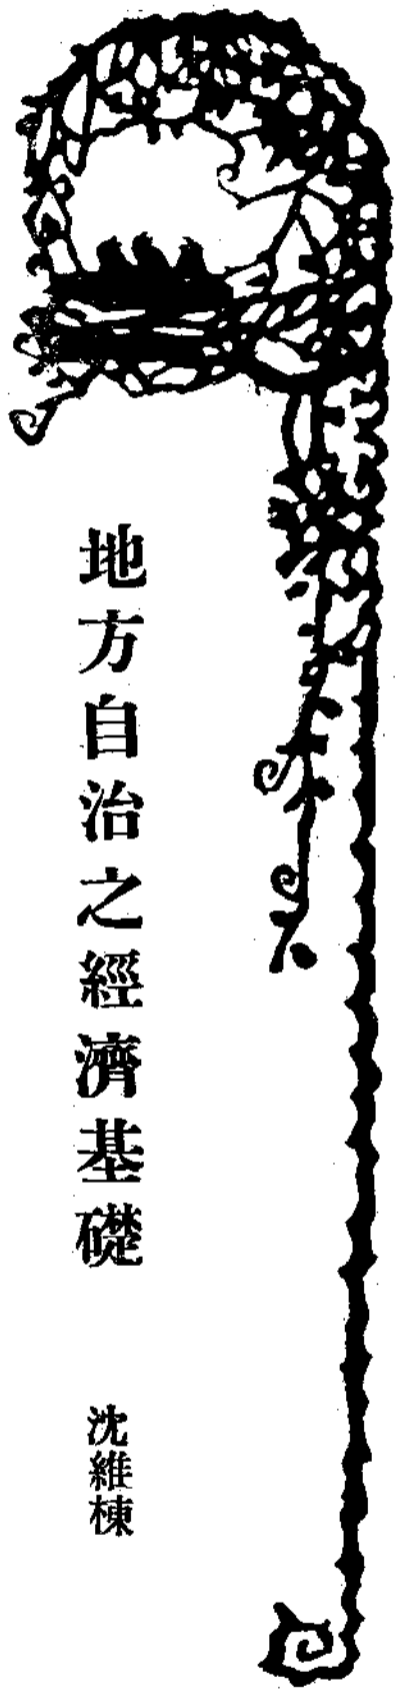 地方自治之經濟基礎
沈維棟